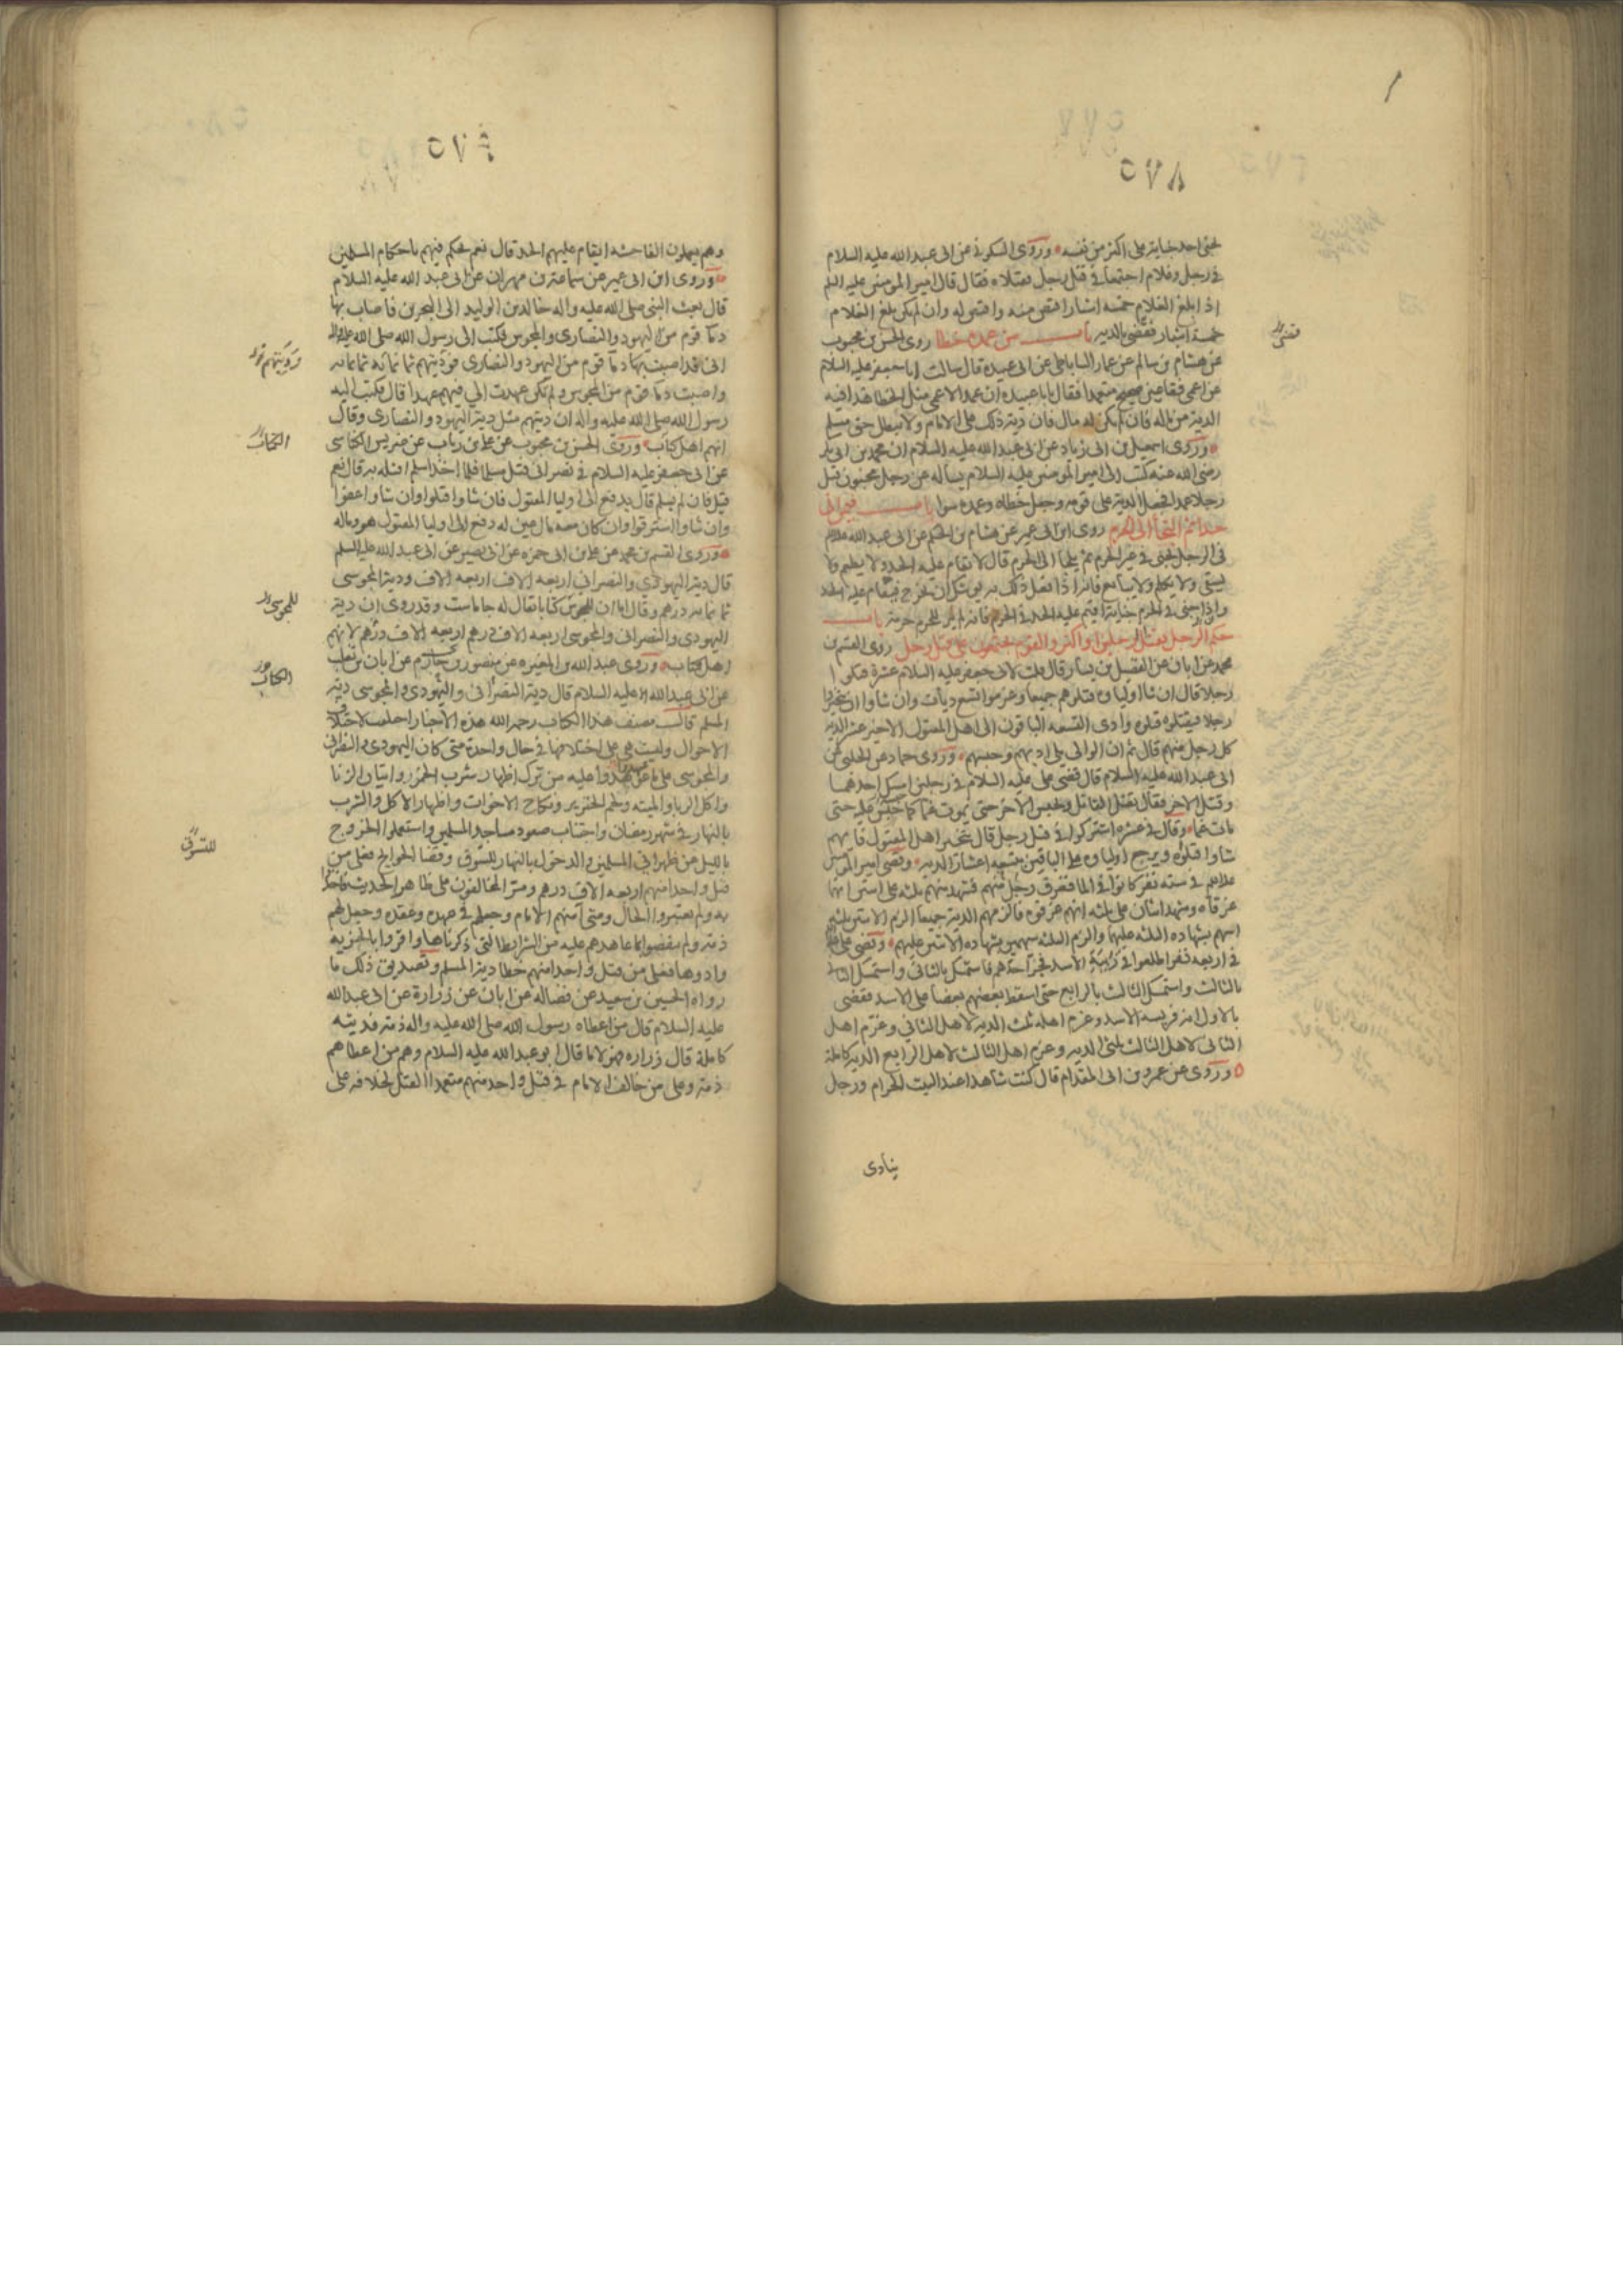 ٥٧٨
يجنى احد جناية على اكثر من نفسه وروى السكونى عن ابى عبد الله عليه السلام
فى رجل وغلام اجتمعا فى قتل رجل فقتلاه فقال قال امير المومنين عليه السلم
اذا بلغ الغلام خمسه اشبار اقتص منه واقتص له وان لم يكن بلغ الغلام
خمسة اشبار فقضى بالديه باب من عمده خطا روى الحسن بن محبوب
قضى
عن هشام بن سالم عن عمار الساباطى عن ابى عبيده قال سالت ابا جعفر عليه السلام
عن اعمى فقا عين صحيح متعمدا فقال يابا عبيده ان عمد الاعمى مثل الخطا هذا فيه
الدية من ماله فان لم يكن له مال فان دية ذلك على الامام ولا يبطل حق مسلم
وروى اسمعيل بن ابى زياد عن ابى عبد الله عليه السلام ان محمد بن ابى بكر
رضى الله عنه كتب الى امير المومنين عليه السلام يساله عن رجل مجنون قتل
رجلا عمدا فجعل الدية على قومه وجعل خطاه وعمده سوا باب فيمن اتى
حدا ثم التجأ الى الحرم روى ابن ابى عمير عن هشام بن الحكم عن ابى عبد الله
فى الرجل يجنى فى غير الحرم ثم يلجأ الى الحرم قال لا يقام عليه الحد ولا يطعم ولا
يسقى ولا يكلم ولا يبايع فانه اذا فعل ذلك به يوشك ان يخرج فيقام عليه الحد
واذا جنى فى الحرم جناية اقيم عليه الحد فى الحرم فانه لم ير للحرم حرمة باب
حكم الرجل يقتل الرجلين او اكثر والقوم يجتمعون على قتل رجل روى القسم بن
محمد عن ابان عن الفضيل بن يسار قال قلت لابى جعفر عليه السلام عشرة قتلوا
رجلا قال ان شا اولياوه قتلوهم جميعا وغرموا تسع ديات وان شاوا ان يتخيروا
رجلا فيقتلوه قتلوه وادى التسعه الباقون الى اهل المقتول الاخير عشر الديه
كل رجل منهم قال ثم ان الوالى يلى ادبهم وحبسهم وروى حماد عن الحلبى عن
ابى عبد الله عليه السلام قال قضى على عليه السلام فى رجلين امسك احدهما
وقتل الاخر فقال يقتل القاتل ويحبس الاخر حتى يموت غما كما حبس عليه حتى
مات غما وقال فى عشره اشتركوا فى قتل رجل قال يتخير اهل المقتول فايهم
شاوا قتلوه ويرجع اولياوه على الباقين بتسعه اعشار الديه وقضى امير المومنين
فى سته نفر كانوا فى الما فغرق رجل منهم فشهد منهم ثلثه على اثنين انهما
غرقاه وشهد اثنان على ثلثه انهم غرقوه فالزمهم الدية جميعا الزم الاثنين ثلثه
اسهم بشهاده الثلثه عليهما والزم الثلثه سهمين بشهاده الاثنين عليهم وقضى
فى اربعه نفر اطلعوا فى زبية الاسد فخر احدهم فاستمسك بالثانى واستمسك الثانى
بالثالث واستمسك الثالث بالرابع حتى اسقط بعضهم بعضا على الاسد فقضى
بالاول انه فريسه الاسد وغرم اهله ثلث الديه لاهل الثانى وغرم اهل
الثانى لاهل الثالث ثلثى الديه وغرم اهل الثالث لاهل الرابع الديه كاملة
وروى عن عمرو بن ابى المقدام قال كنت شاهدا عند البيت الحرام ورجل
ينادى
٥٧٩
وهم يعملون الفاحشه ايقام عليهم الحد قال نعم يحكم فيهم باحكام المسلمين
وروى ابن ابى عمير عن سماعة بن مهران عن ابى عبد الله عليه السلام
قال بعث النبى صلى الله عليه واله خالد بن الوليد الى البحرين فاصاب بها
دما قوم من اليهود والنصارى والمجوس فكتب الى رسول الله صلى الله عليه واله
انى قد اصبت بها دما قوم من اليهود والنصارى فوديتهم ثمانمائه ثمانمائه
واصبت دما قوم من المجوس ولم تكن عهدت الى فيهم عهدا قال فكتب اليه
رسول الله صلى الله عليه واله ان ديتهم مثل دية اليهود والنصارى وقال
انهم اهل كتاب وروى الحسن بن محبوب عن على بن رياب عن ضريس الكناسى
الكتاب
عن ابى جعفر عليه السلام فى نصرانى قتل مسلما فلما اخذ اسلم اقتله به قال نعم
قيل فان لم يسلم قال يدفع الى اوليا المقتول فان شاوا قتلوا وان شاوا عفوا
وان شاوا استرقوا وان كان معه مال عين له دفع الى اوليا المقتول هو وماله
وروى القسم بن محمد عن على بن ابى حمزه عن ابى بصير عن ابى عبد الله عليه السلم
قال دية اليهودى والنصرانى اربعه الاف اربعه الاف ودية المجوسى
ثمانمايه درهم وقال اما ان للمجوس كتابا يقال له جاماست وقد روى ان دية
للمجوسى
اليهودى والنصرانى والمجوسى اربعه الاف درهم اربعه الاف درهم لانهم
اهل كتاب وروى عبد الله بن المغيره عن منصور بن حازم عن ابان بن تغلب
الكتاب
عن ابى عبد الله عليه السلام قال دية النصرانى واليهودى والمجوسى دية
المسلم قال مصنف هذا الكتاب رحمه الله هذه الاخبار اختلفت لاختلاف
الاحوال وليست هى على اختلافها فى حال واحدة متى كان اليهودى والنصرانى
والمجوسى على ما عوهدوا عليه من ترك اظهار شرب الخمور واتيان الزنا
واكل الربا والميته ولحم الخنزير ونكاح الاخوات واظهار الاكل والشرب
بالنهار فى شهر رمضان واجتناب صعود مساجد المسلمين واستعملوا الخروج
بالليل عن ظهرانى المسلمين والدخول بالنهار للتسوق وقضا الحوايج فعلى من
للتسوق
قتل واحدا منهم اربعه الاف درهم ومر المخالفون على ظاهر الحديث فاخذوا
به ولم يعتبروا الحال ومتى آمنهم الامام وجعلهم فى عهده وعقده وجعل لهم
ذمة ولم ينقضوا ما عاهدهم عليه من الشرايط التى ذكرناها واقروا بالجزيه
وادوها فعلى من قتل واحدا منهم خطا دية المسلم وتصديق ذلك ما
رواه الحسين بن سعيد عن فضاله عن ابان عن زرارة عن ابى عبد الله
عليه السلام قال من اعطاه رسول الله صلى الله عليه واله ذمة فديته
كاملة قال زراره فهولا ما قال ابو عبد الله عليه السلام وهم من اعطاهم
ذمة وعلى من خالف الامام فى قتل واحد منهم متعمدا القتل لخلافه على